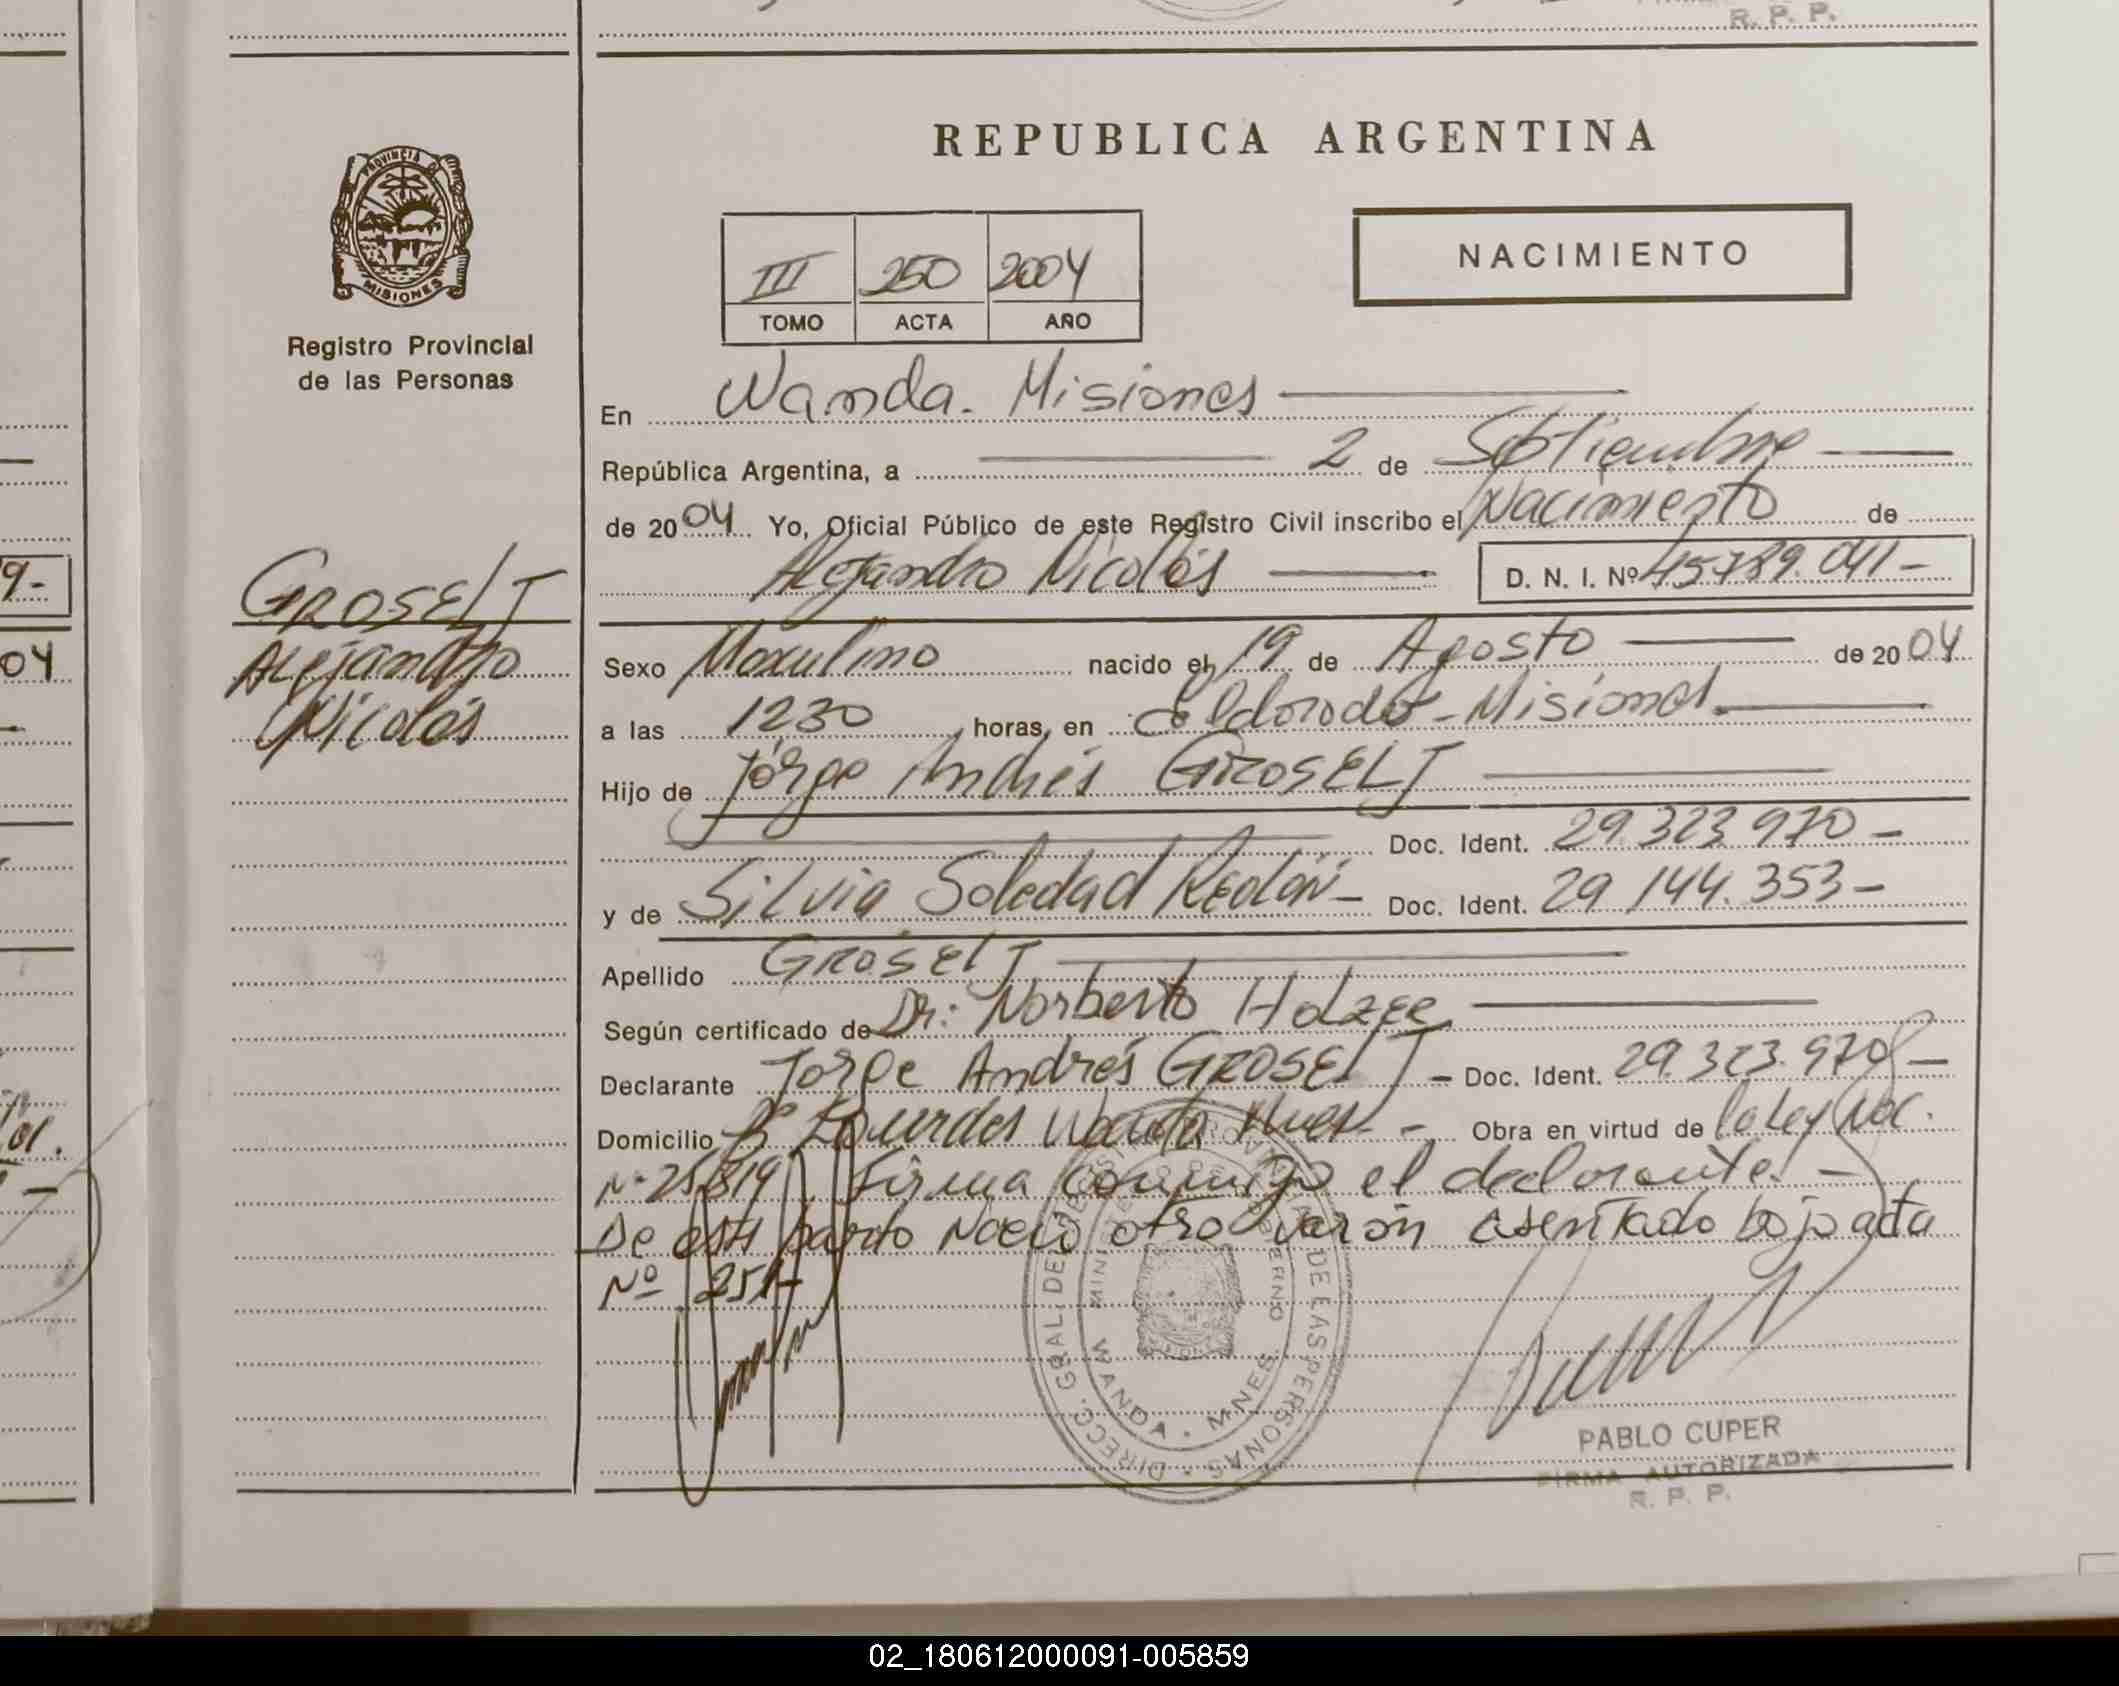 R. P. P.
PROVINCIA DE
MISIONES
Registro Provincial
de las Personas
REPUBLICA ARGENTINA
NACIMIENTO
III 250 2004
TOMO ACTA AÑO
En Wanda. Misiones
República Argentina, a 2 de Septiembre
de 2004 Yo, Oficial Público de este Registro Civil inscribo el Nacimiento de
Alejandro Nicolás D. N. I. Nº 45.789.041-
GROSELJ
Alejandro
Nicolás
Sexo Masculino nacido el 19 de Agosto de 2004
a las 1230 horas, en Eldorado - Misiones.
Hijo de Jorge Andrés GROSELJ
Doc. Ident. 29.323.970-
y de Silvia Soledad Redlán- Doc. Ident. 29.144.353-
Apellido GROSELJ
Según certificado de Dr: Norberto Holzer
Declarante Jorge Andrés GROSELJ - Doc. Ident. 29.323.970-
Domicilio Bº Lourdes Wanda Mnes - Obra en virtud de la Ley Nac.
Nº 25819 Firma conmigo el declarante. -
De este parto Nació otro varón asentado bajo acta
Nº 251-
DIRECC. GRAL. DEL REGISTRO PROVINCIAL DE LAS PERSONAS
MINISTERIO DE GOBIERNO
WANDA - MNES
PABLO CUPER
FIRMA AUTORIZADA
R. P. P.
9-
04
02_180612000091-005859